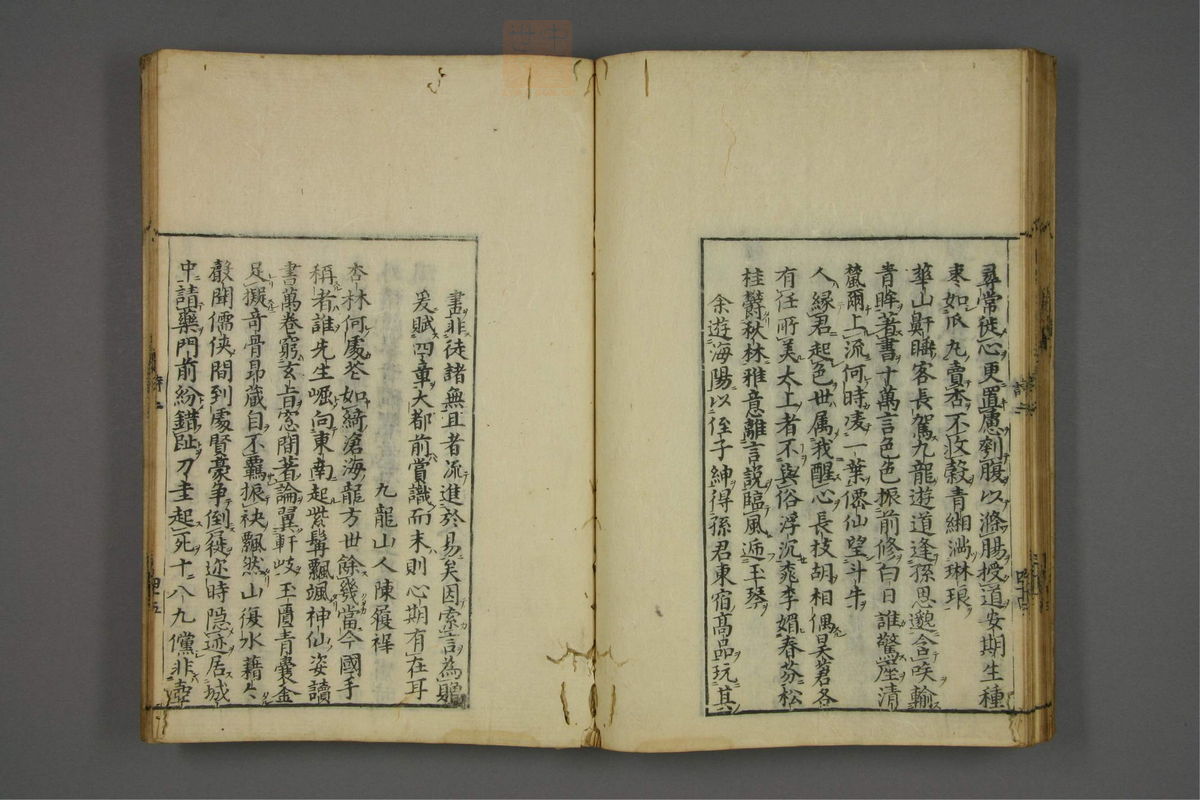 尋常徙心更置慮刳腹以滌腸授道安期生種
棗如瓜九賣杏不收穀青緗滿琳琅
華山鼾睡客長駕九龍遊道逢孫思邈含咲輸
青眸著書十萬言色色振前修白日誰驚座清
爾上流何時凌一葉僊仙望斗牛
人緣君起色世属我醒心長枝胡相偶昊蒼各
有任所美太上者不與俗浮沉桃李媚春芬松
桂欝秋林雅意離言說臨風逓玉琴
余遊海陽以侄子紳得孫君東宿高品玩其
畫非徒諸無且者流進於易矣因索言為贈
爰賦四章大都前賞識而末則心期有在耳
九龍山人陳履祥
杏林何處苍如綺滄海龍方世餘幾當今國手
稱者誰先生崛向東南起紫髯飄颯神仙姿讀
書萬卷窮玄旨窓間著論翼軒岐玉匱青囊金
足擬奇骨昂藏自不羈振袂飄然山復水藉々
聲聞儒俠間到處賢豪争倒屣迩時隐迹居城
中請藥門前紛錯趾刀圭起死十八九儻非